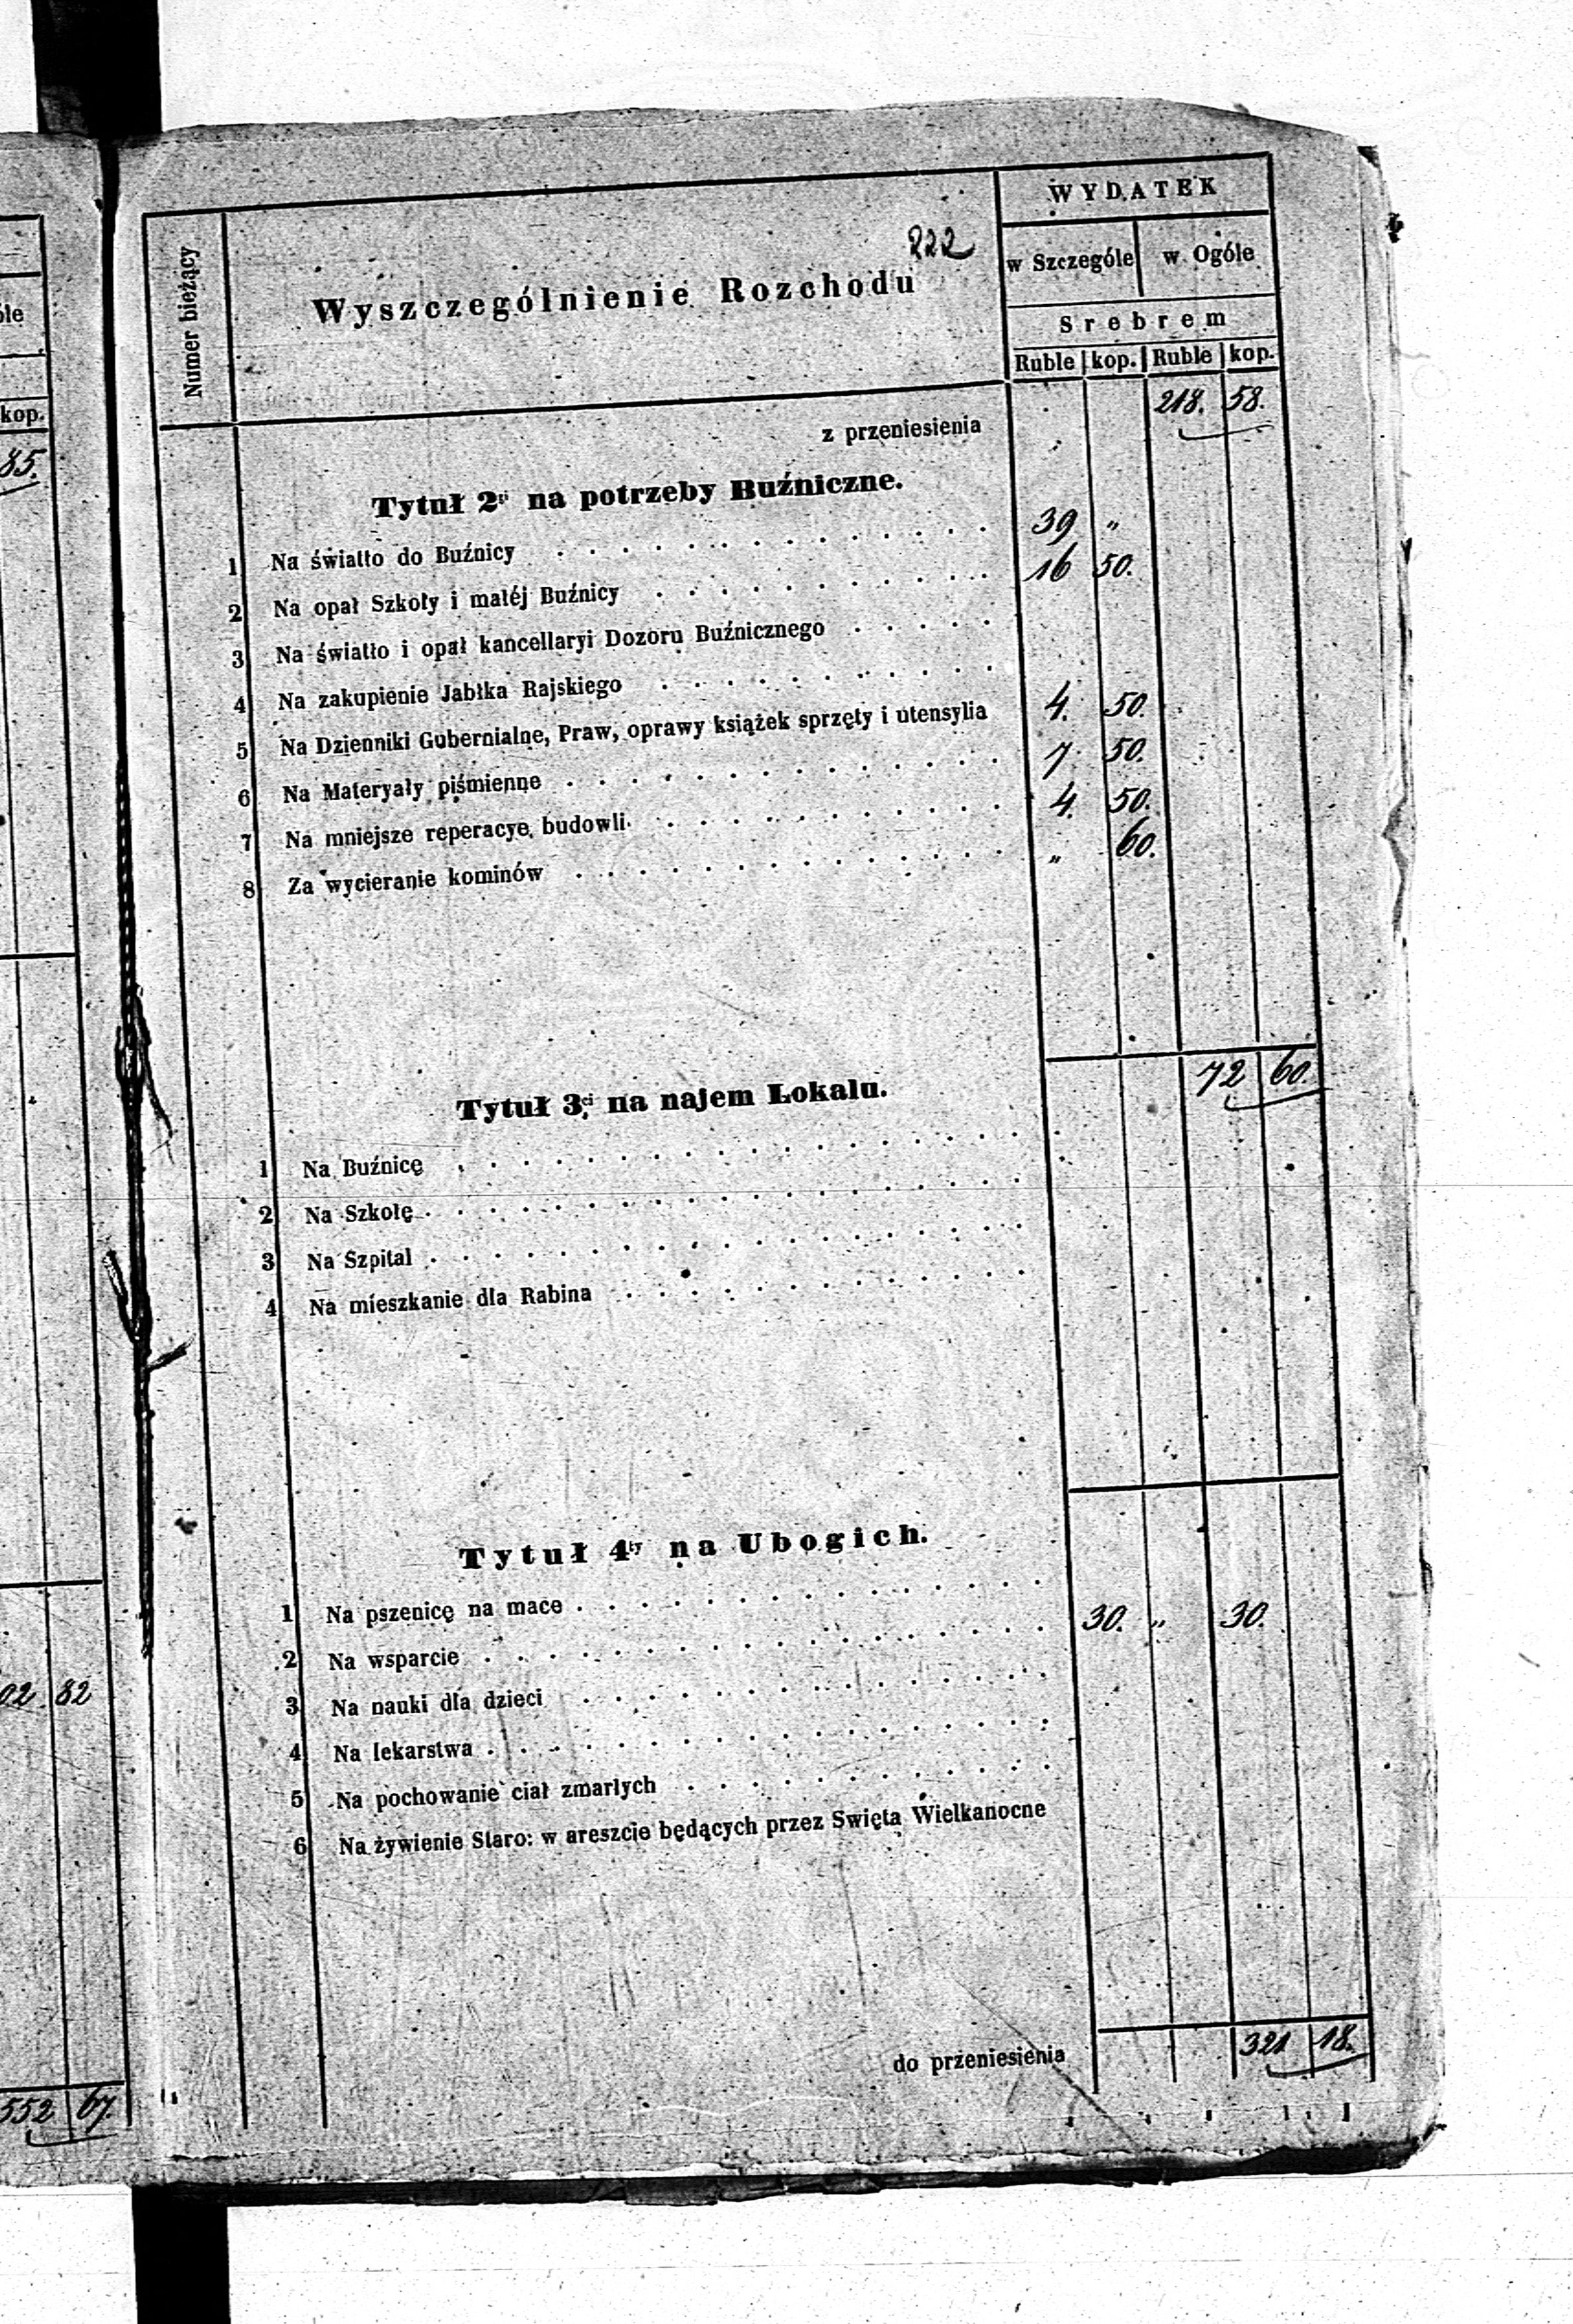 ole
kop.
85.
02 82
552 67.
222
WYDATEK
Numer bieżący
Wyszczególnienie Rozchodu
w Szczególe w Ogóle
Srebrem
Ruble kop. Ruble kop.
z przeniesienia 218. 58.
Tytuł 2gi na potrzeby Buźniczne.
1 Na światło do Buźnicy 39 „
2 Na opał Szkoły i małéj Buźnicy 16 50.
3 Na światło i opał kancellaryi Dozoru Buźnicznego
4 Na zakupienie Jabłka Rajskiego
5 Na Dzienniki Gubernialne, Praw, oprawy książek sprzęty i utensylia 4. 50.
6 Na Materyały piśmienne 7. 50.
7 Na mniejsze reperacye budowli 4. 50.
8 Za wycieranie kominów „ 60.
72 60.
Tytuł 3ci na najem Lokalu.
1 Na Buźnicę
2 Na Szkołę
3 Na Szpital
4 Na mieszkanie dla Rabina
Tytuł 4ty na Ubogich.
1 Na pszenicę na mace 30. „ 30.
2 Na wsparcie
3 Na nauki dla dzieci
4 Na lekarstwa
5 Na pochowanie ciał zmarłych
6 Na żywienie Staro: w areszcie będących przez Swięta Wielkanocne
do przeniesienia 321 18.